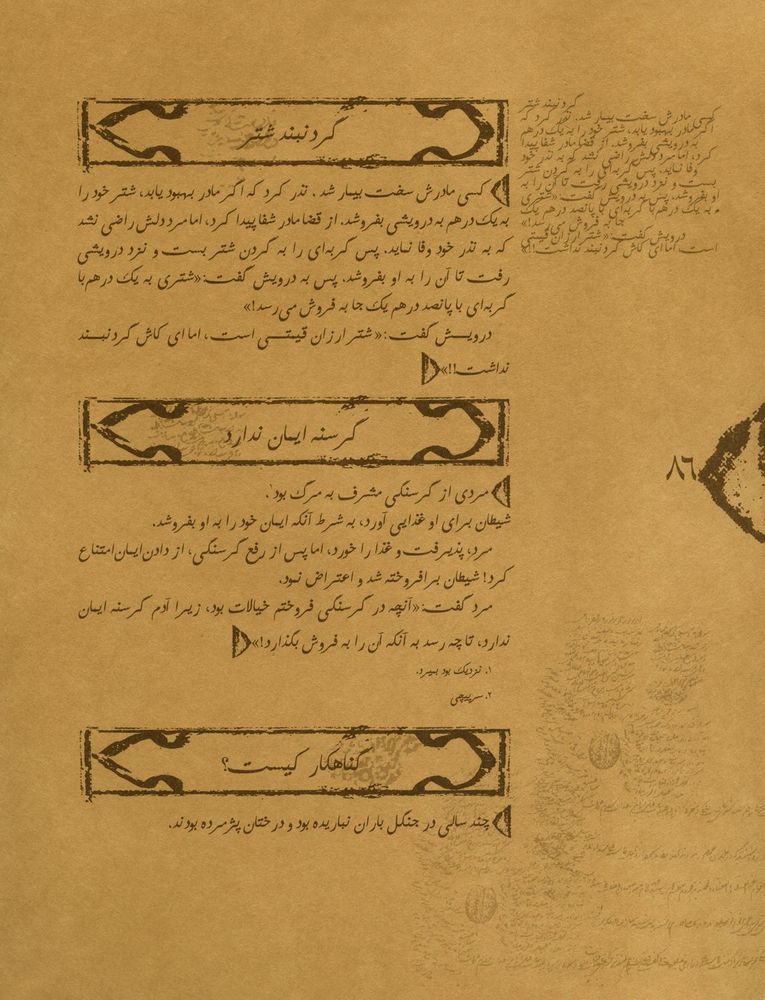 گردنبند شتر
کسی مادرش سخت بیمار شد. نذر کرد که اگر مادر بهبود یابد، شتر خود را
به یک درهم به درویشی بفروشد. از قضا مادر شفا پیدا کرد، اما مرد دلش راضی نشد
که به نذر خود وفا نماید. پس گربه‌ای را به گردن شتر بست و نزد درویشی
رفت تا آن را به او بفروشد. پس به درویش گفت:«شتری به یک درهم با
گربه‌ای با پانصد درهم یک جا به فروش می‌رسد!»
درویش گفت:«شتر ارزان قیمتی است، اما ای کاش گردنبند
نداشت!!»
گرسنه ایمان ندارد
مردی از گرسنگی مشرف به مرگ بود۱.
شیطان برای او غذایی آورد، به شرط آنکه ایمان خود را به او بفروشد.
مرد، پذیرفت و غذا را خورد، اما پس از رفع گرسنگی، از دادن ایمان امتناع
کرد! شیطان برافروخته شد و اعتراض نمود.
مرد گفت:«آنچه در گرسنگی فروختم خیالات بود، زیرا آدم گرسنه ایمان
ندارد، تا چه رسد به آنکه آن را به فروش بگذارد!»
۱. نزدیک بود بمیرد.
۲. سرپیچی
گناهکار کیست؟
چند سالی در جنگل باران نباریده بود و درختان پژمرده بودند.
گردنبند شتر
کسی مادرش سخت بیمار شد. نذر کرد که
اگر مادر بهبود یابد، شتر خود را به یک درهم
به درویشی بفروشد. از قضا مادر شفا پیدا
کرد، اما مرد دلش راضی نشد که به نذر خود
وفا نماید. پس گربه‌ای را به گردن شتر
بست و نزد درویشی رفت تا آن را به
او بفروشد. پس به درویش گفت:«شتری
به یک درهم با گربه‌ای با پانصد درهم یک
جا به فروش می‌رسد!»
درویش گفت:«شتر ارزان قیمتی
است، اما ای کاش گردنبند نداشت!!»
۸۶